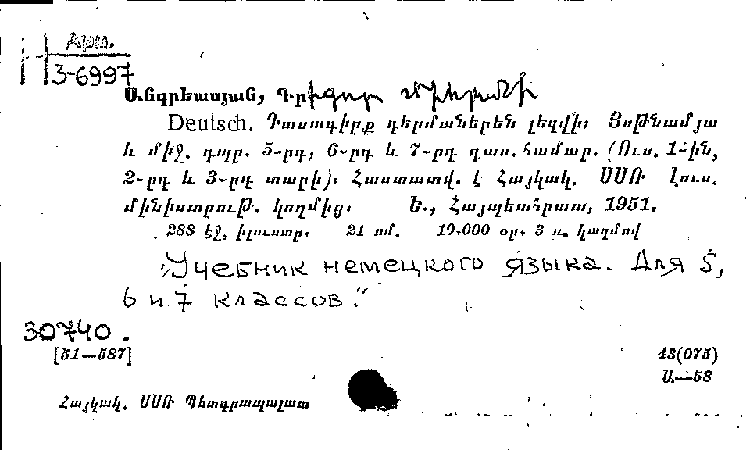 Арм.
H 3-6997
Անդրեասյան, Գրիգոր Միհրանի
Deutsch. Դասագիրք գերմաներեն լեզվի։ Յոթնամյա
և միջ. դպր. 5-րդ, 6-րդ և 7-րդ դաս. համար. (Ուս. 1-ին,
2-րդ և 3-րդ տարի)։ Հաստատվ. է Հայկակ. ՍՍՌ Լուս.
մինիստրութ. կողմից։ Ե., Հայպետհրատ, 1951.
288 էջ, իլուստր. 21 սմ. 10.000 օր. 3 ռ. կազմով
„Учебник немецкого языка. Для 5,
6 и 7 классов."
30740.
[51—587]
43(075)
Ա—58
Հայկակ. ՍՍՌ Պետգրապալատ